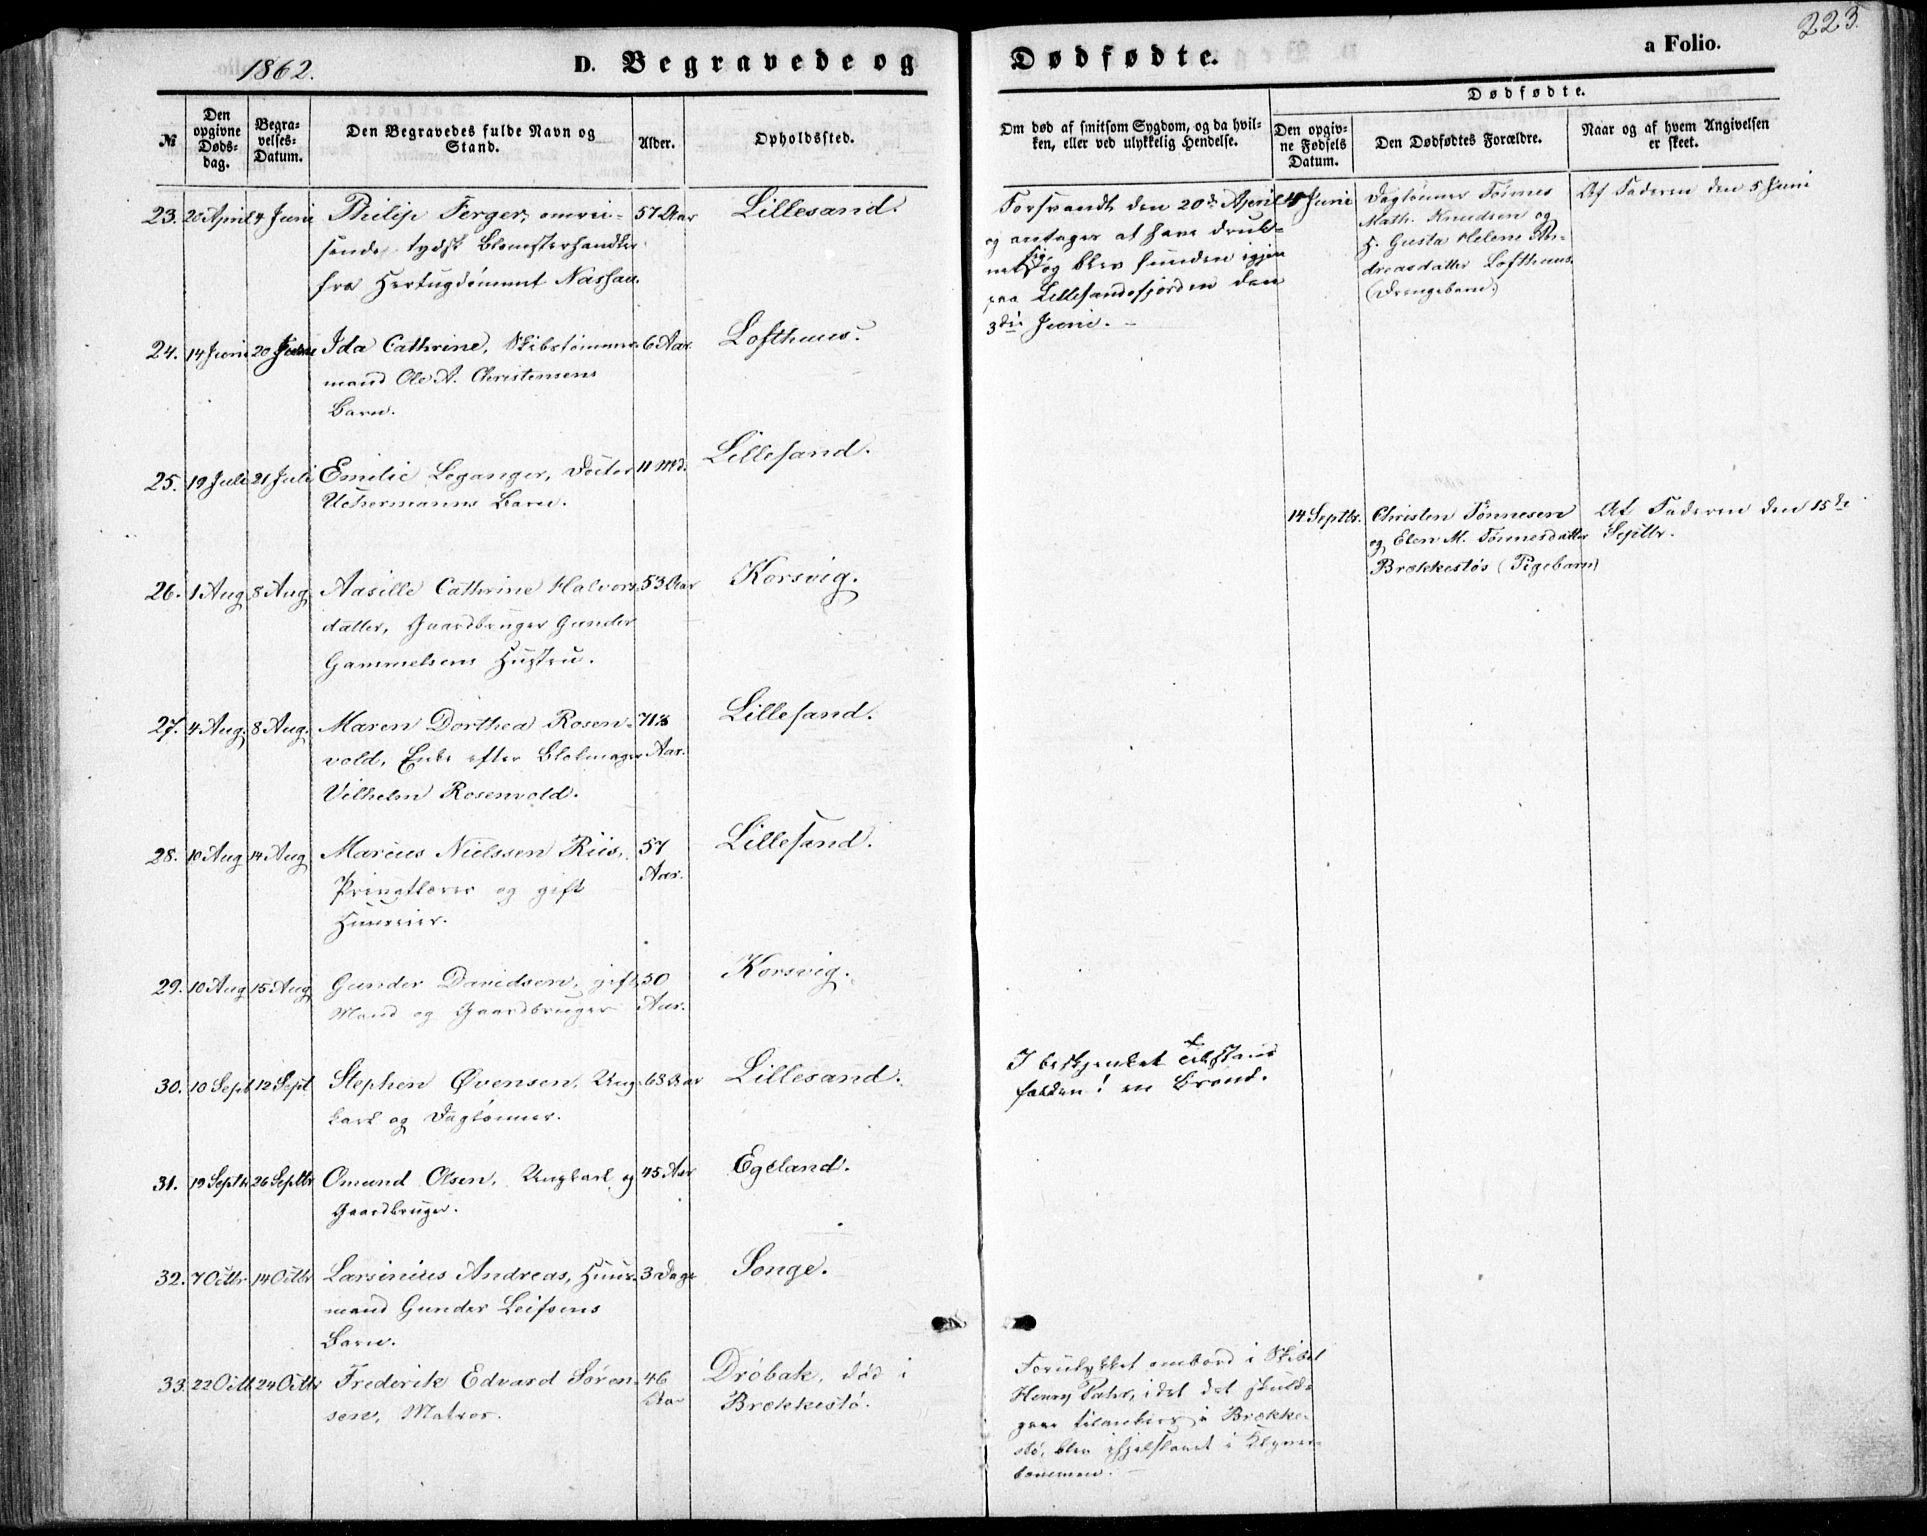 223.
1862.
D. Begravede og Dødfødte.
a Folio.
№
Den opgivne Døds-dag.
Begra-velses-Datum.
Den Begravedes fulde Navn og Stand.
Alder.
Opholdssted.
Om død af smitsom Sygdom, og da hvil-
ken, eller ved ulykkelig Hendelse.
Dødfødte.
Den opgiv-ne Fødsels Datum.
Den Dødfødtes Forældre.
Naar og af hvem Angivelsen er skeet.
23. 20 April 4 Juni Philip Ferger, omrei- 57 Aar Lillesand.
sende tydsk Blomsterhandler
fra Hertugdømmet Nassau.
Forsvandt den 20de April
og antages at have druk-
net sig og blev funden igjen
paa Lillesandsfjorden den
3die Juni. –
Juni Daglønner Tønnes Af Faderen den 5 Juni
Math. Knudsen og
H. Gusta Helene An-
dreasdatter Lofthuus.
(Drengebarn.)
24. 14 Juni 20 Juni Ida Cathrine, Skibstømmer- 6 Aar Lofthuus.
mand Ole A. Christensens
Barn.
25. 19 Juli 21 Juli Emilie Leganger, Doctor 11 Md. Lillesand.
Uchermanns Barn.
14 Septbr. Christen Tønnesen Af Faderen den 15de
og Elen M. Tønnesdatter Septbr.
Brækkestøs (Pigebarn)
26. 1 Aug 8 Aug. Aasille Cathrine Halvors- 53 Aar Korsvig.
datter, Gaardbruger Gunder
Gammelsens Hustru.
27. 4 Aug. 8 Aug. Maren Dorthea Rosen- Lillesand.
vold, Enke efter Blokmager Aar.
Vilhelm Rosenvold.
28. 10 Aug 14 Aug Marcus Nielssen Riis, 57 Lillesand.
Privatlærer og gift Aar.
Huuseier.
29. 10 Aug 15 Aug Gunder Davidsen, gift 50 Korsvig.
Mand og Gaardbruger Aar.
30. 10 Sept 12 Sept Stephen Øvensen, Ung- 68 Aar Lillesand.
karl og Dagtønner.
I beskjenket Tilstand
falden i en Brønd.
31. 19 Septbr 26 Septbr Omund Olsen, Ungkarl og 45 Aar Egeland.
Gaardbruger.
32. 7 Octbr 14 Octbr Larsinius Andreas, Huus- 3 Dage Songe.
mand Gunder Leifsens
Barn.
33. 22 Octb. 24 Octbr Frederik Edvard Søren- 46 Drøbak, død i
sen, Matros. Aar Brækkestø.
Forulykket ombord i Skibet
Henry idet det skulde
gaae tilankers i Brække-
stø, blev ihjelslaaet i Klyver-
bommen. –